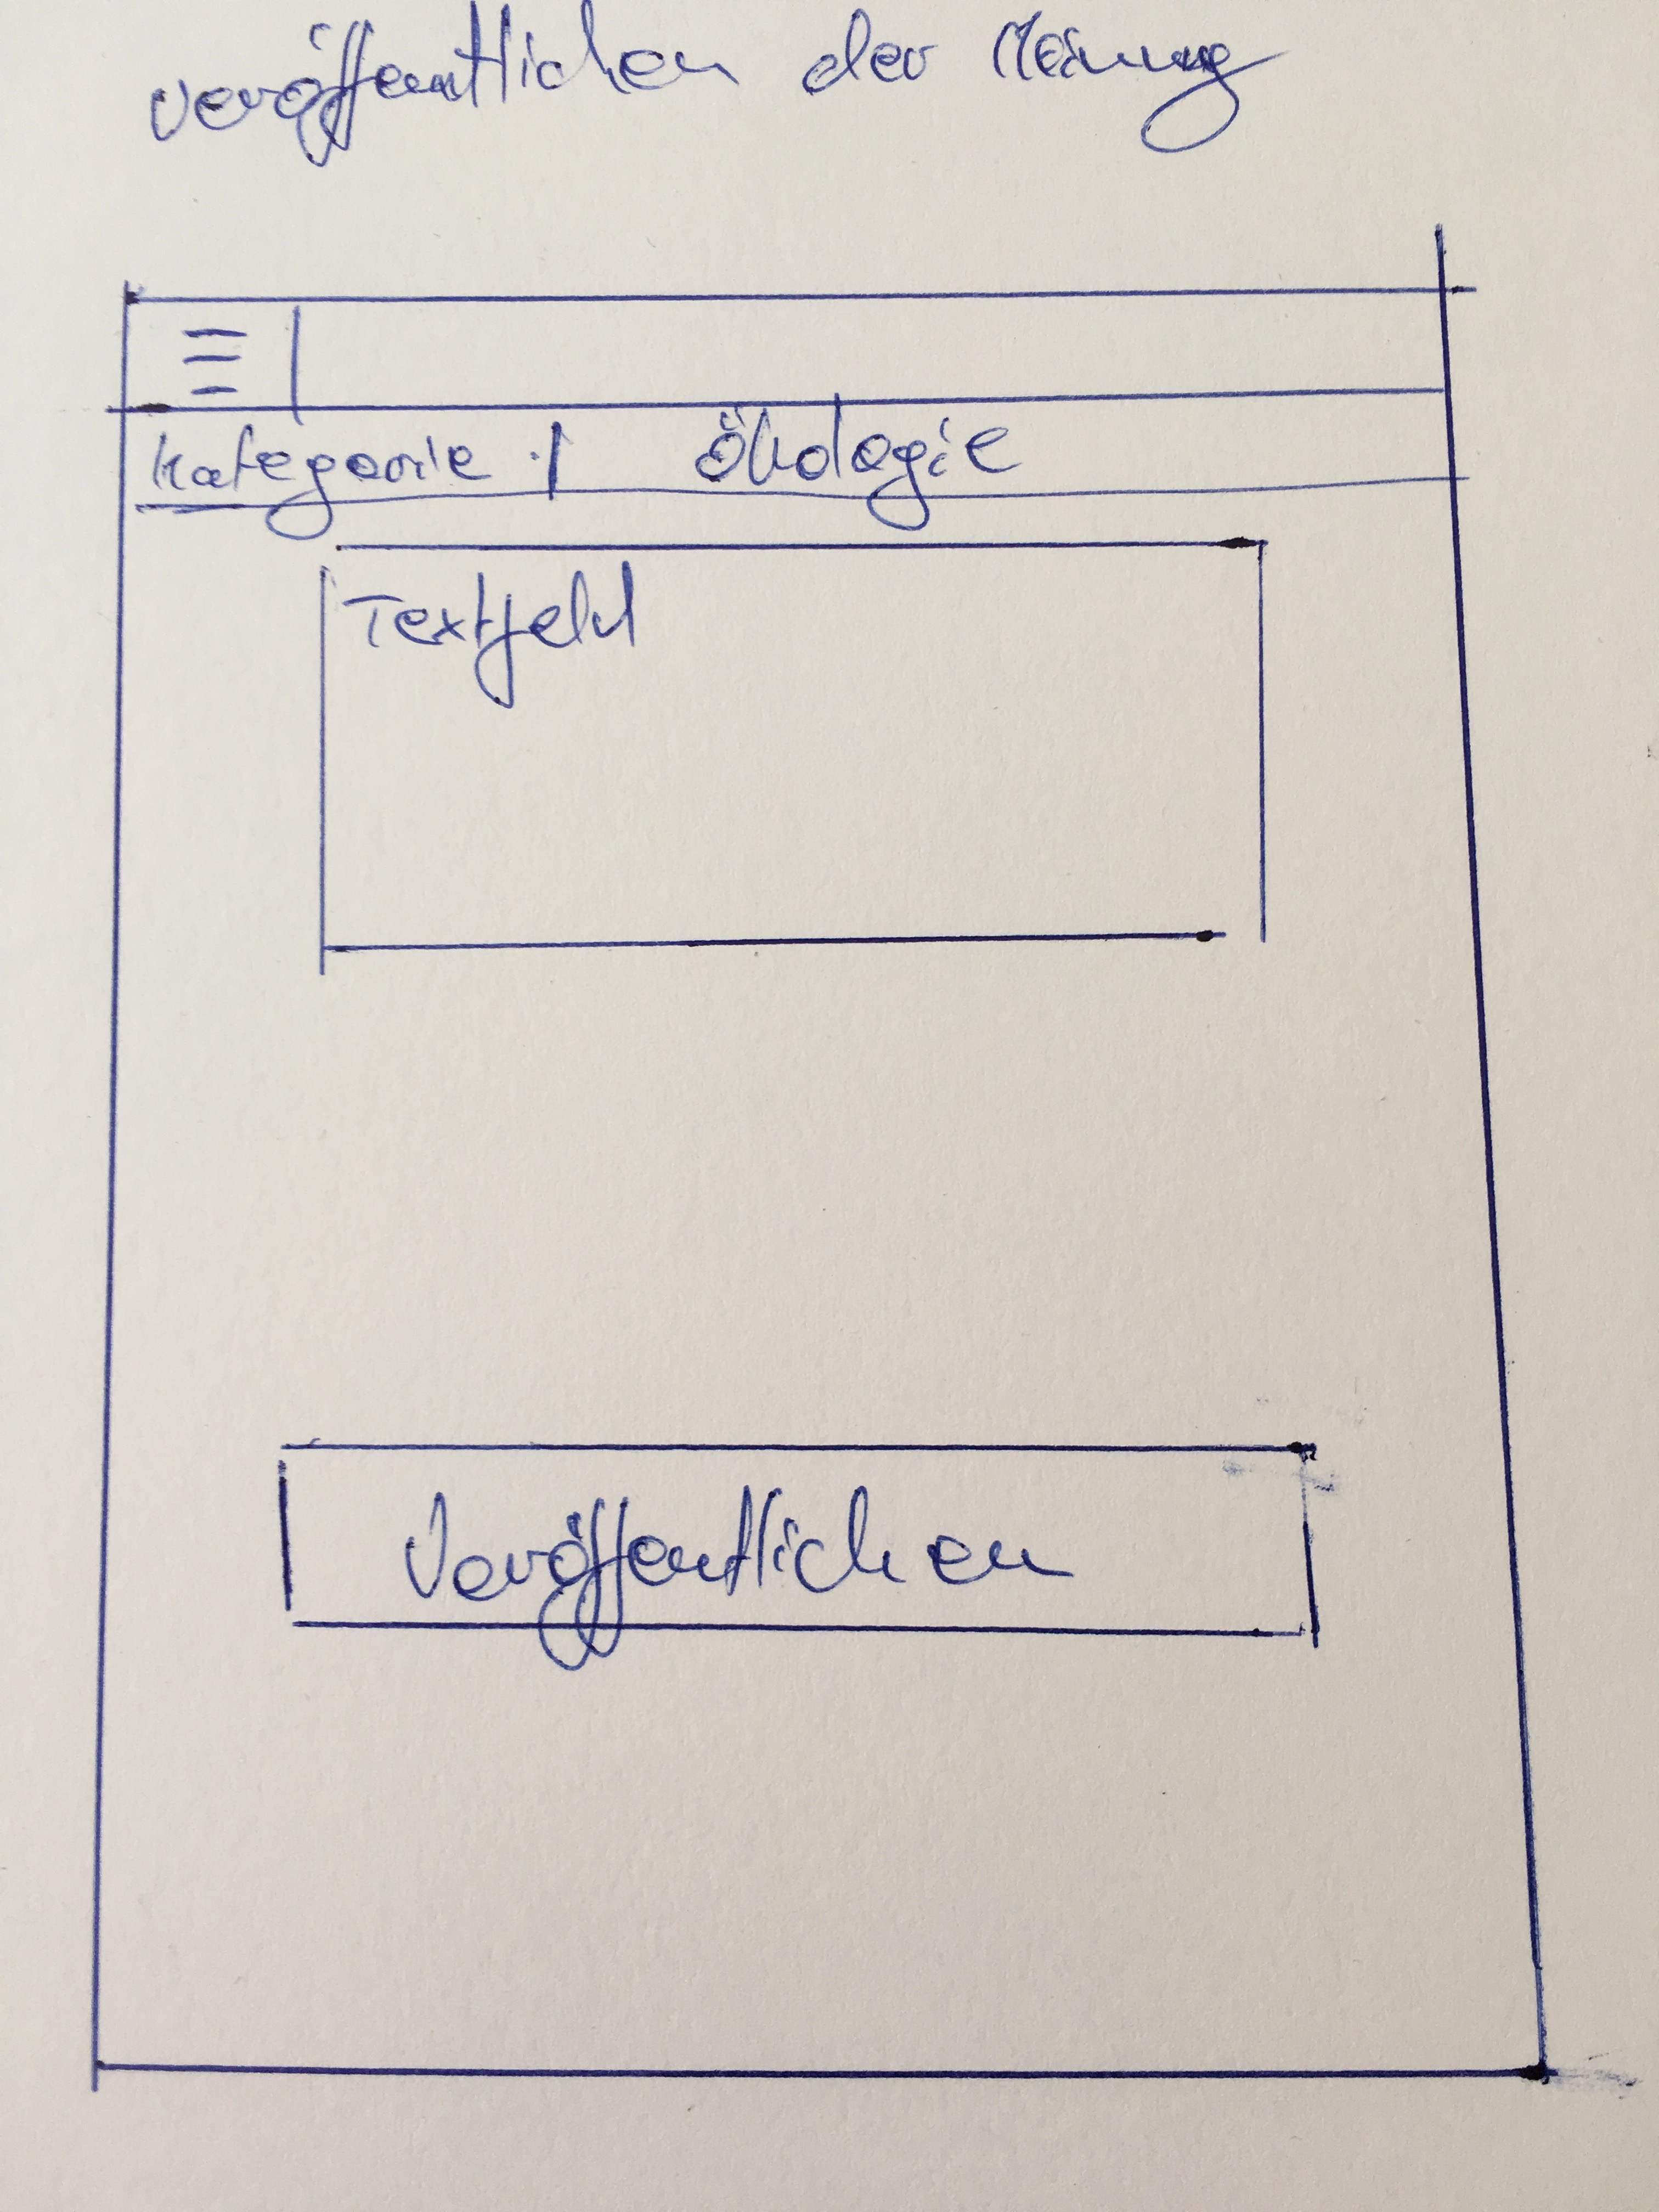 veröffentlichen der Meinung
Kategorie : Ökologie
Textfeld
Veröffentlichen